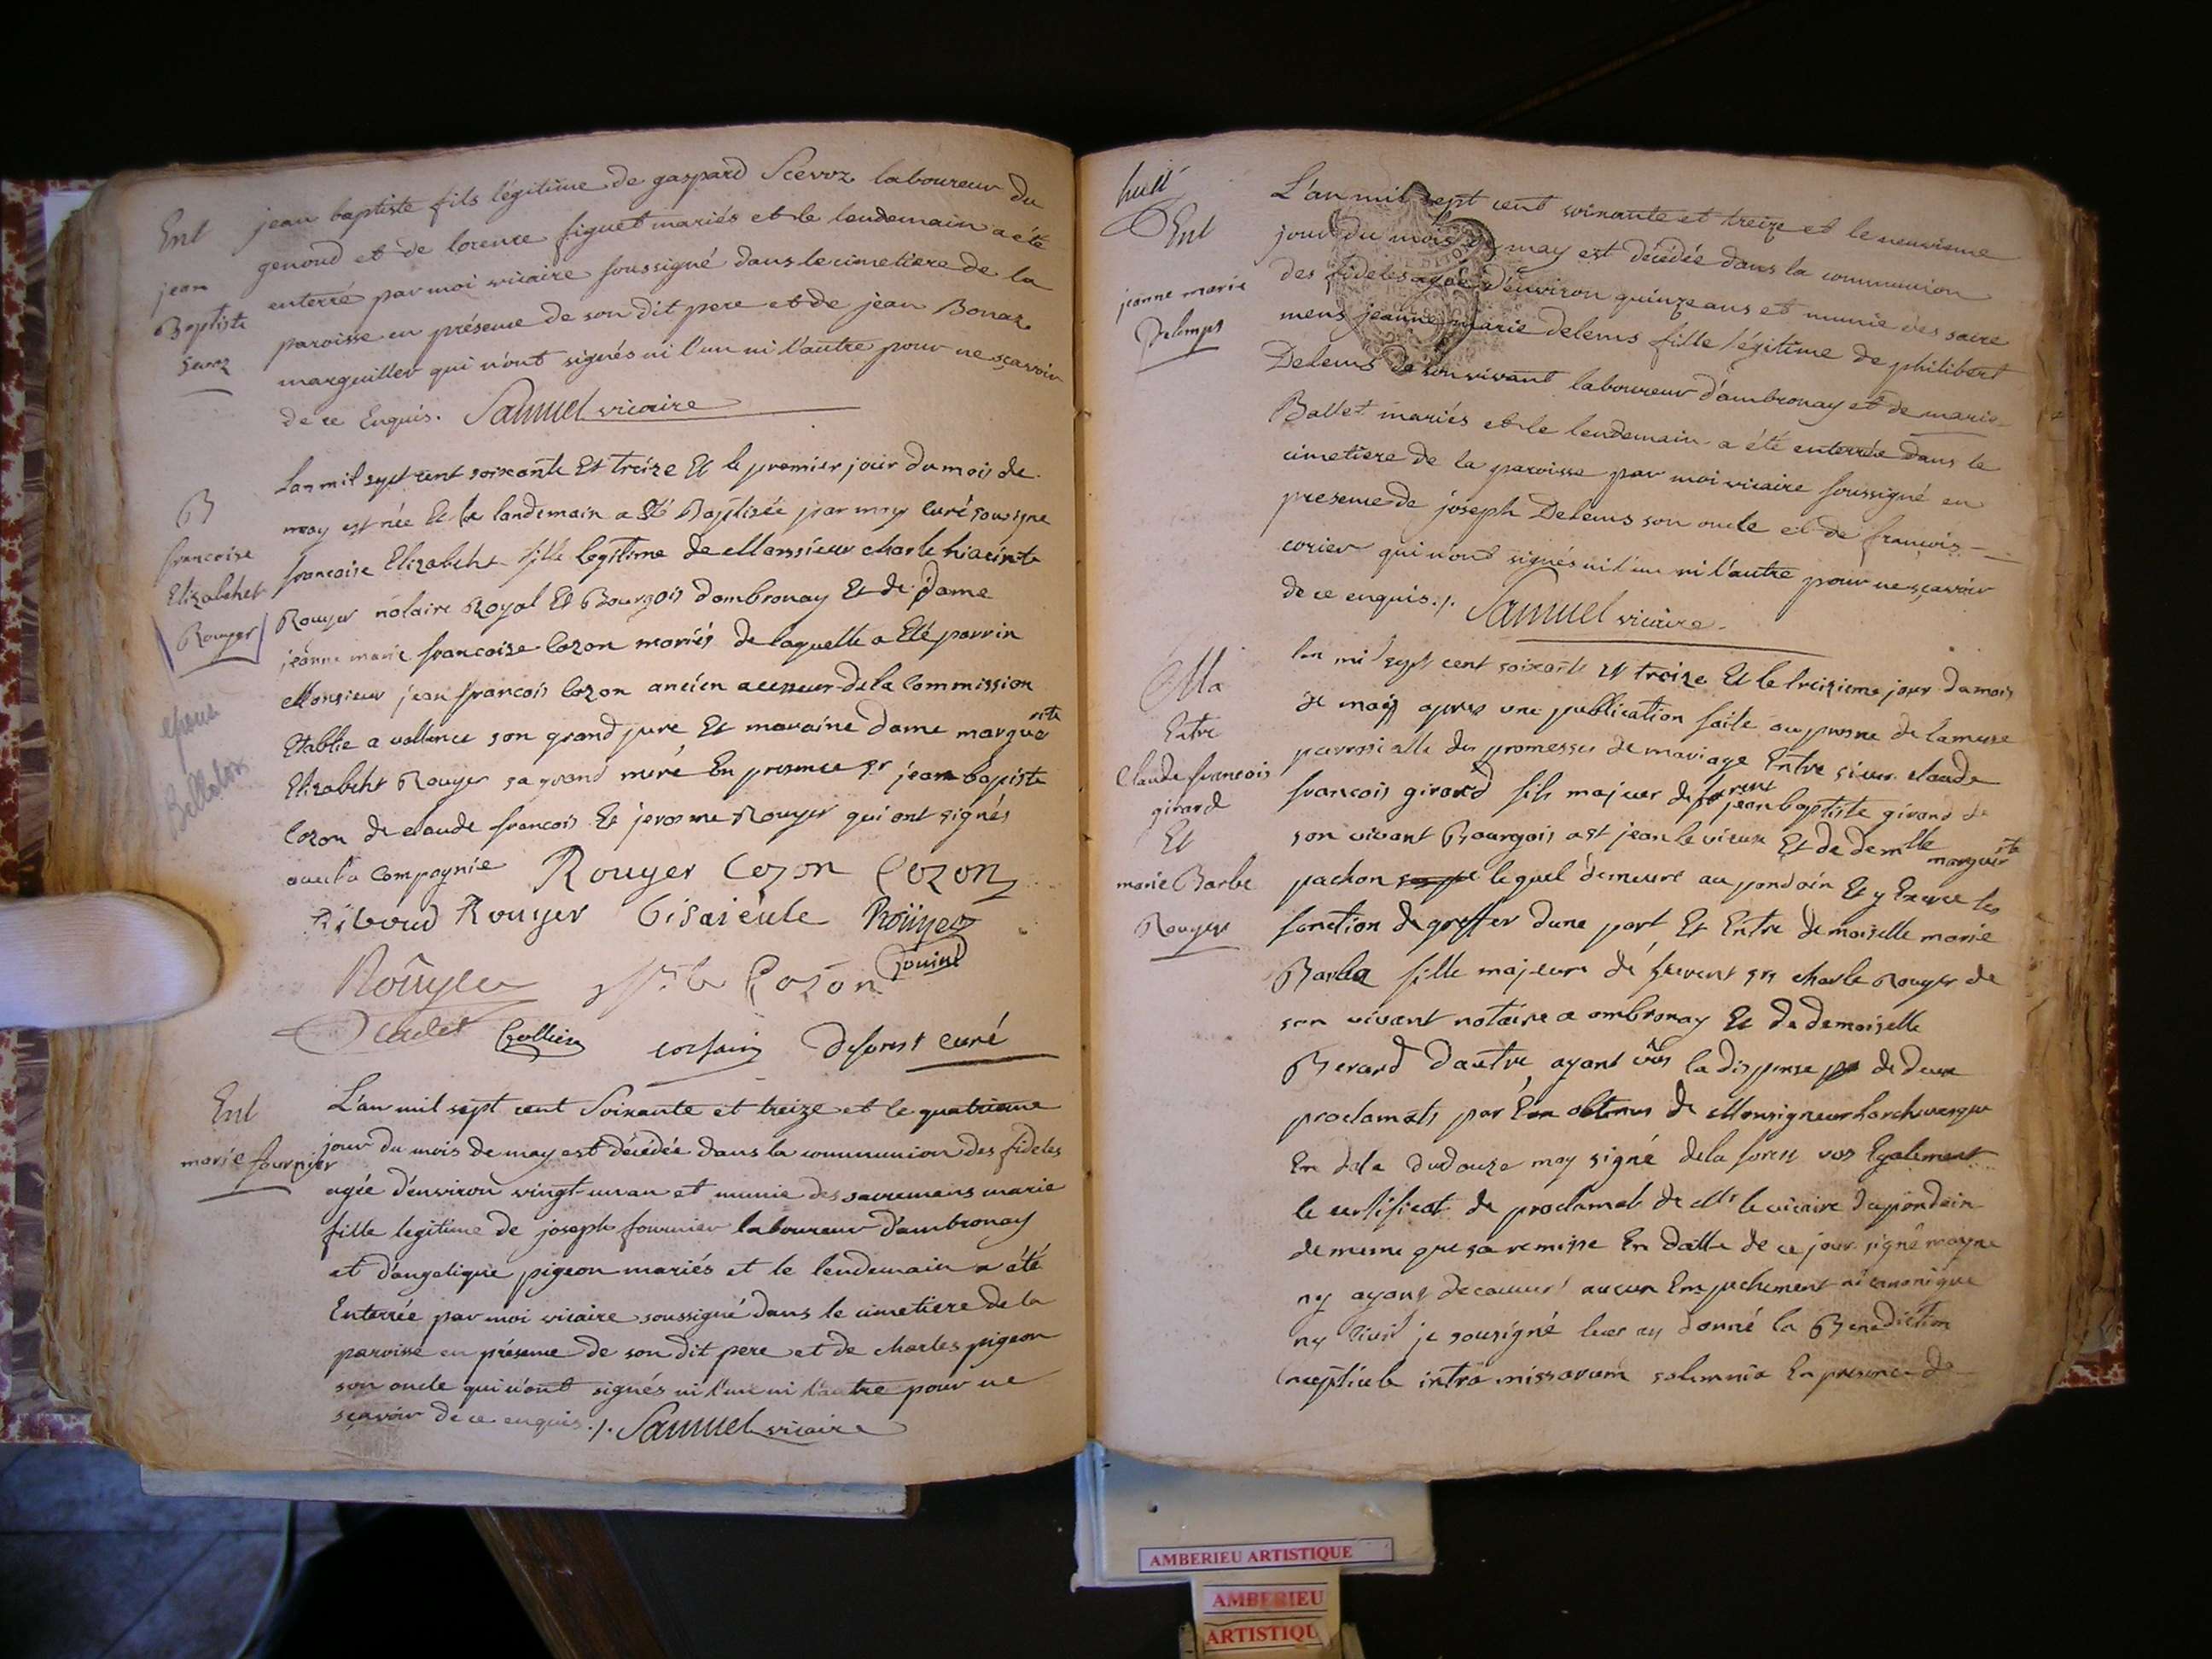 Ent
jean
Baptiste
jean baptiste fils légitime de gaspard Scevoz laboureur du
genoud et de lorence figuet mariés et le lendemain a été
enterré par moi vicaire soussigné dans le cimetiere de la
paroisse en présence de son dit pere et de jean Bonaz
marguiller qui n'ont signés ni l'un ni l'autre pour ne sçavoir
de ce Enquis. Samuel vicaire
B
francoise
Elizabehet
Rouyer
epoux
Lan mil sept cent soixante Et treize Et le premier jour du mois de
may est née Et le landemain a Eté Baptisée par moy curé sousigne
francoise Elizabeht fille legitime de Monsieur charle hiacinte
Rouyer notaire Royal Et Bourgois dambronay Et de dame
jeanne marie francoise cozon mariés de laquelle a Eté parrin
Monsieur jean francois cozon ancien acesseur de la Commission
Etablie a vallence son grand pere Et maraine dame marguerite
Elizabeht Rouyer sa grand mere En presence sr jean baptiste
cozon de claude francois Et jerosme Rouyer qui ont signés
avec la Compagnie Rouyer Cozon Cozon
Riboud Rouyer bisaieule Roüyer
Roüyer Cozon
cadet deforest curé
Ent
marie fournier
L'an mil sept cent Soixante et treize et le quatrieme
jour du mois de may est décédée dans la communion des fideles
agée d'environ vingt-un an et munie des sacremens marie
fille legitime de joseph fournier laboureur d'ambronay
et d'angelique pigeon mariés et le lendemain a été
Enterrée par moi vicaire soussigné dans le cimetiere de la
paroisse en présence de son dit pere et de charles pigeon
son oncle qui n'ont signés ni l'un ni l'autre pour ne
sçavoir de ce enquis ./. Samuel vicaire
huit
Ent
jeanne marie
Delemps
L'an mil sept cent soixante et treize et le neuvieme
jour du mois de may est décédée dans la communion
des fideles agée d'environ quinze ans et munie des sacre
mens jeanne marie delems fille légitime de philibert
Delems de son vivant laboureur d'ambronay et de marie
Ballet mariés et le lendemain a été enterrée dans le
cimetiere de la paroisse par moi vicaire soussigné en
presence de joseph Delems son oncle et de françois
corier qui n'ont signés ni l'un ni l'autre pour ne sçavoir
de ce enquis ./. Samuel vicaire
Ma
Entre
Claude francois
girard
Et
marie Barbe
Rouyer
lan mil sept cent soixante et treize Et le treizieme jour du mois
de may apres une publication faite au prosne de la messe
parrossialle des promesses de mariage Entre sieur claude
francois girard fils majeur de jean baptiste girard de
son vivant Bourgois a st jean le vieux Et de demlle marguerite
pachon lequel demeure au pondain Et y Exerce les
fonction de greffier dune part Et Entre demoiselle marie
Barbe fille majeure de feu sr charle Rouyer de
son vivant notaire a ambronay Et de demoiselle
Berard dautre, ayant vûs la dispense de deux
proclamats par Eux obtenus de Monsigneur Larchevesque
En date du douze may signé de la forest vus Egalement
le certificat de proclamat de Mr le vicaire du pondain
de meme que sa remisse En datte de ce jour signé moyne
ny ayant decouvert aucun Empechement ni canonique
ny Civil je sousigné leur ay donné la Benediction
nuptiale intra missarum solemnia En presence de
AMBERIEU ARTISTIQUE
AMBERIEU
ARTISTIQU